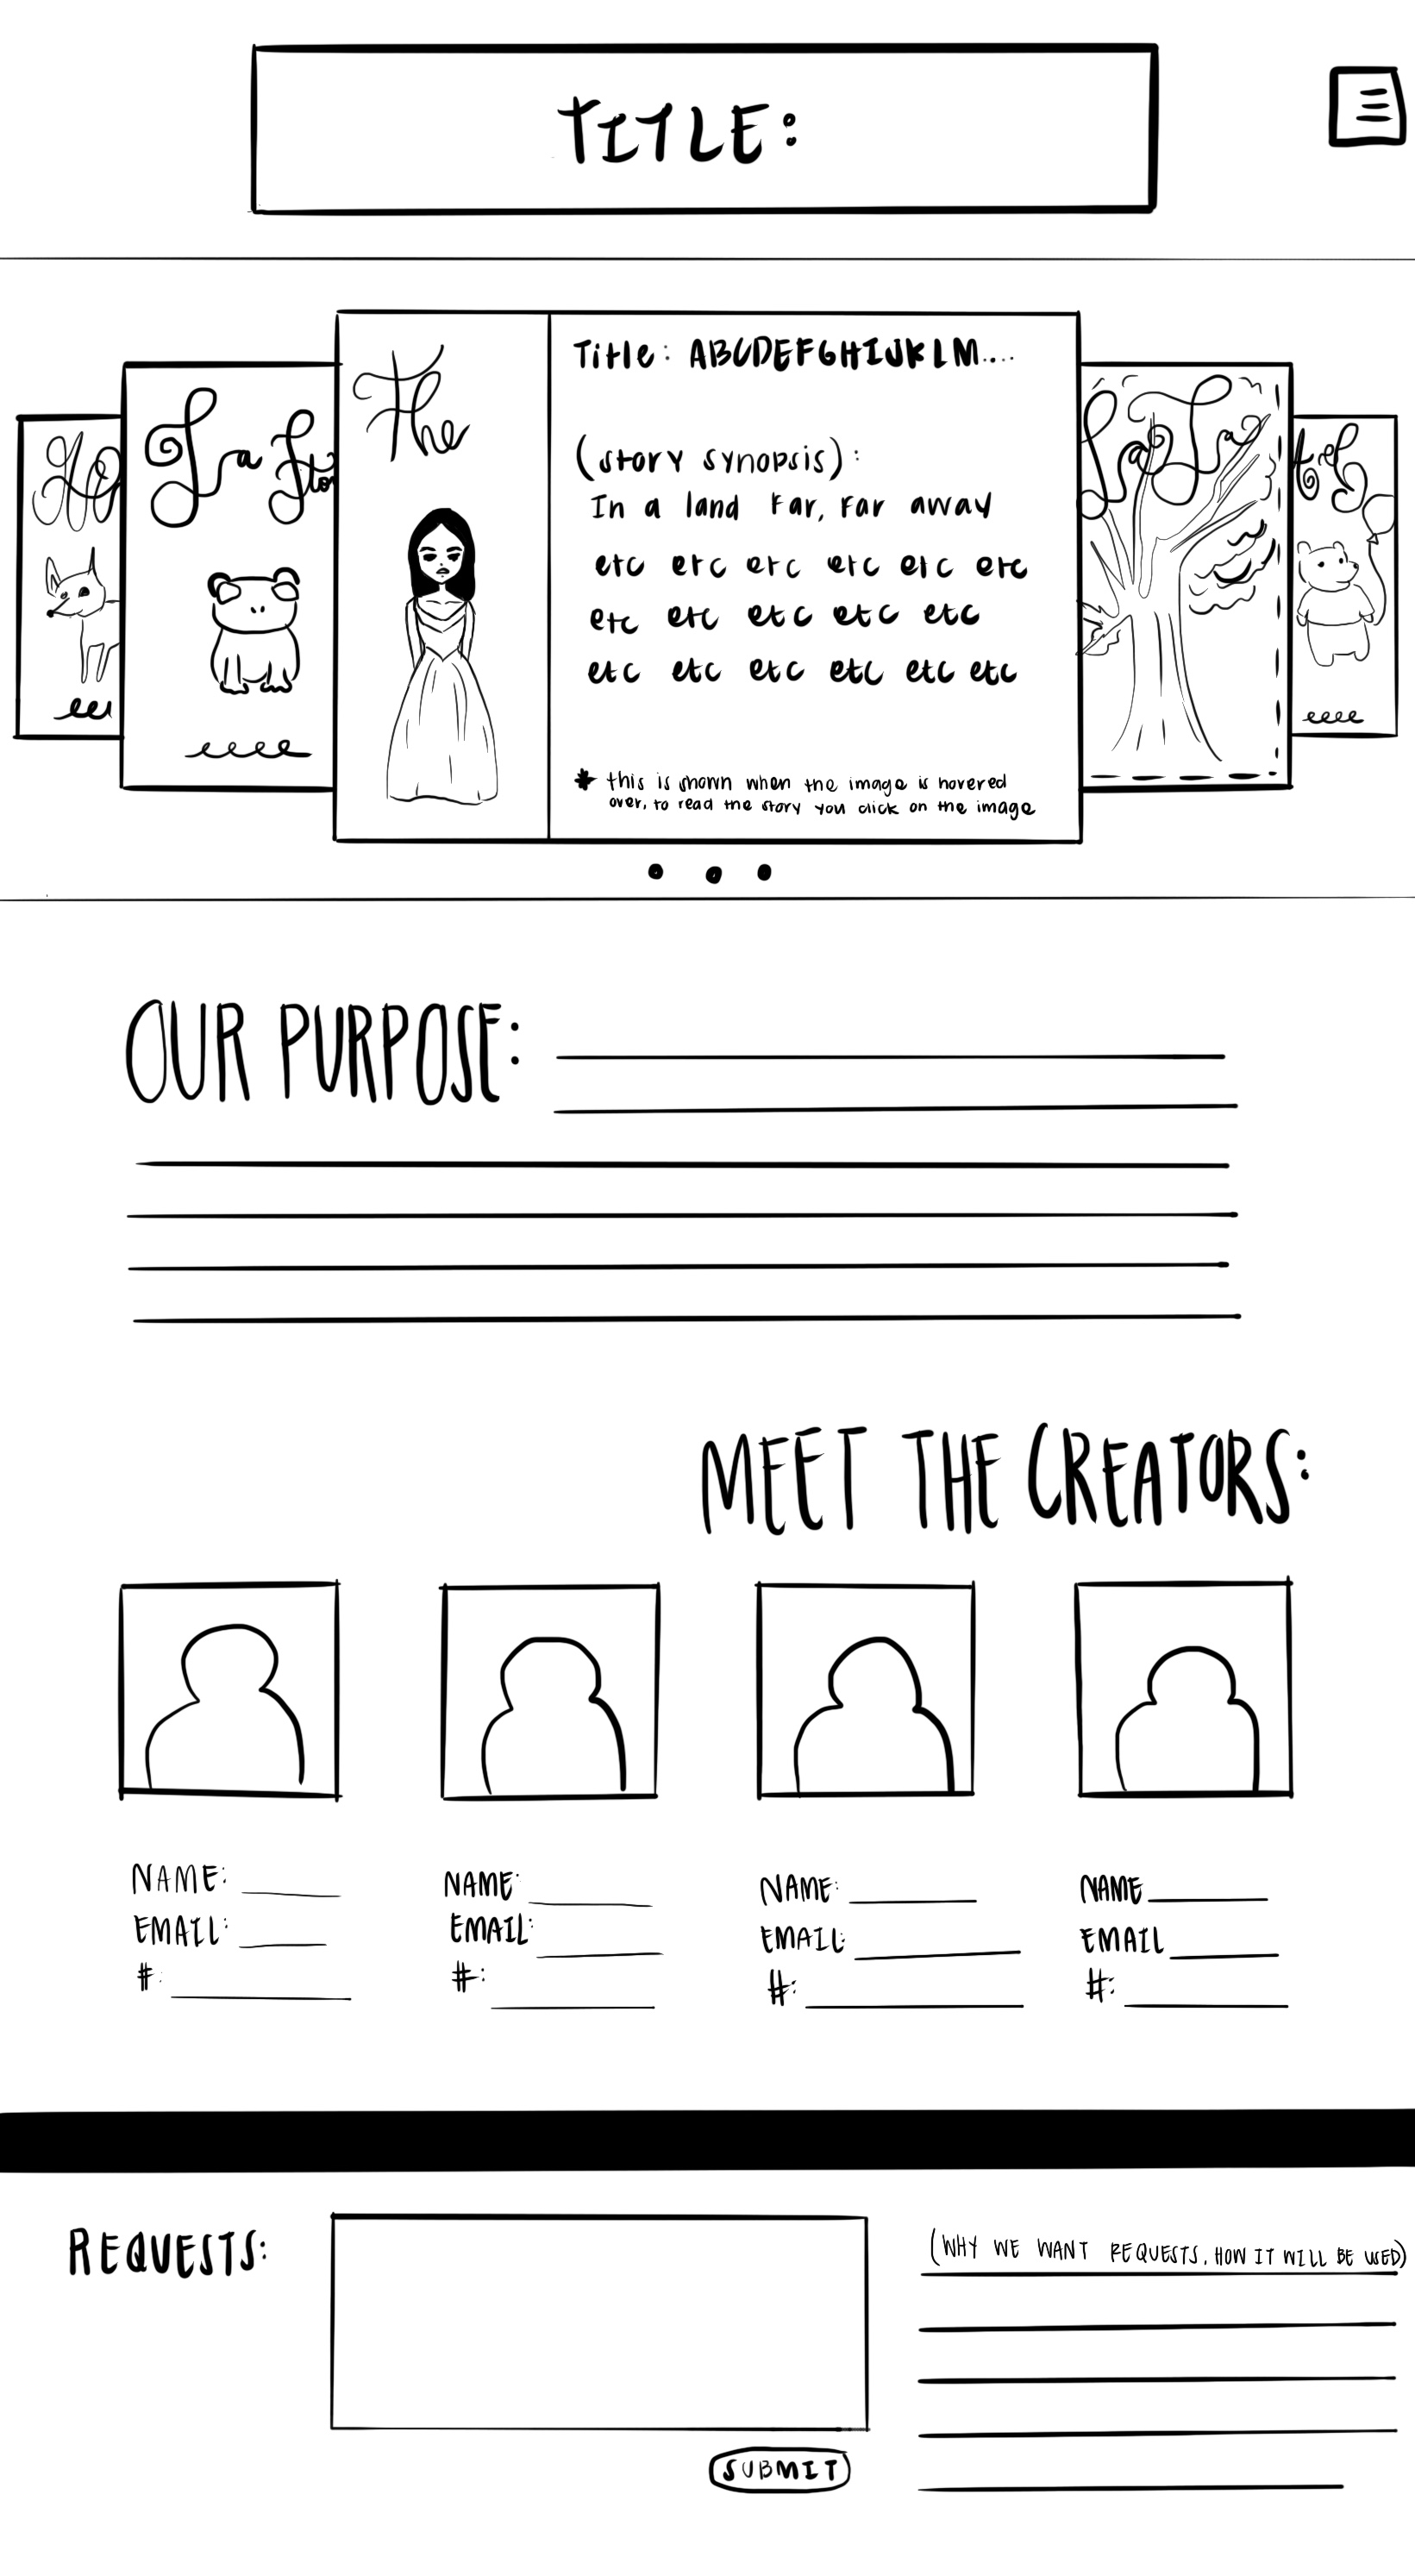 TITLE:
The
Title: ABCDEFGHIJKLM.....
(story synopsis):
In a land far, far away
etc etc etc etc etc etc
etc etc etc etc etc
etc etc etc etc etc etc
* this is shown when the image is hovered
over, to read the story you click on the image
OUR PURPOSE:
MEET THE CREATORS:
NAME: NAME: NAME: NAME
EMAIL: EMAIL: EMAIL: EMAIL
#: #: #: #:
REQUESTS:
(WHY WE WANT REQUESTS, HOW IT WILL BE USED)
SUBMIT